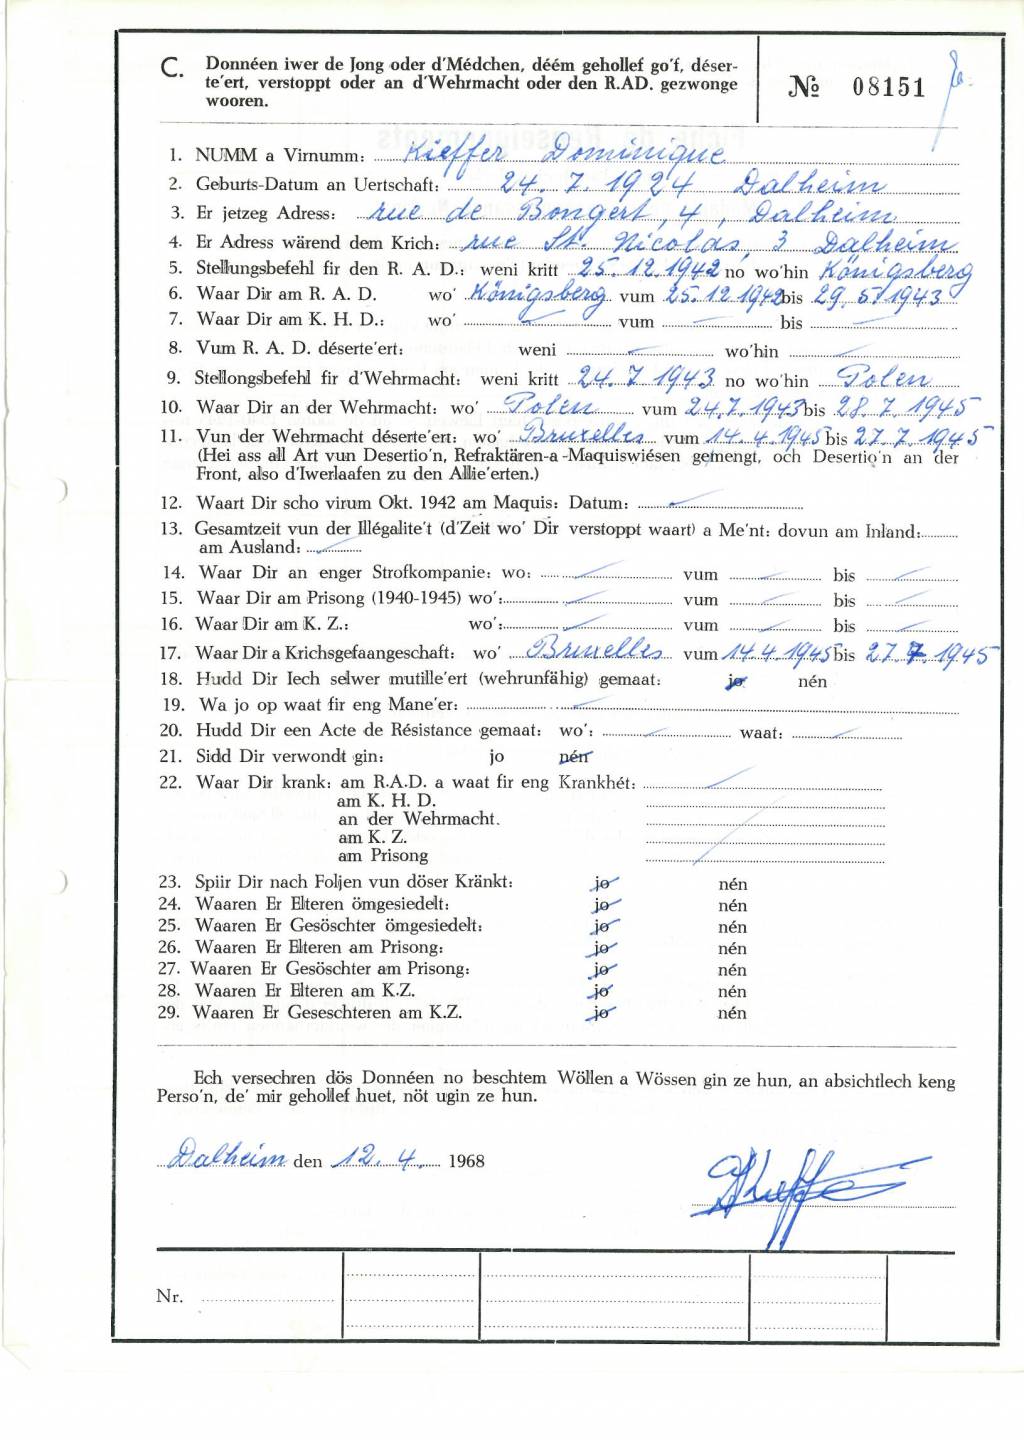 C. Donnéen iwer de Jong oder d'Médchen, déém gehollef go'f, déser-
te'ert, verstoppt oder an d'Wehrmacht oder den R.AD. gezwonge
wooren.
№ 08151
1. NUMM a Virnumm: Kieffer Dominique
2. Geburts-Datum an Uertschaft: 24. 7. 1924 Dalheim
3. Er jetzeg Adress: rue de Bongert, 4, Dalheim
4. Er Adress wärend dem Krich: rue St. Nicolas, 3 Dalheim
5. Stellungsbefehl fir den R. A. D.: weni kritt 25.12.1942 no wo'hin Königsberg
6. Waar Dir am R. A. D. wo' Königsberg vum 25.12 1942 bis 29.5 1943
7. Waar Dir am K. H. D.: wo' vum bis
8. Vum R. A. D. déserte'ert: weni wo'hin
9. Stellongsbefehl fir d'Wehrmacht: weni kritt 24.7 1943 no wo'hin Polen
10. Waar Dir an der Wehrmacht: wo' Polen vum 24.7.1943 bis 28.7.1945
11. Vun der Wehrmacht déserte'ert: wo' Bruxelles vum 14.4.1945 bis 27.7.1945
(Hei ass all Art vun Desertio'n, Refraktären-a-Maquiswiésen gemengt, och Desertio'n an der
Front, also d'Iwerlaafen zu den Allie'erten.)
12. Waart Dir scho virum Okt. 1942 am Maquis: Datum:
13. Gesamtzeit vun der Illégalite't (d'Zeit wo' Dir verstoppt waart) a Me'nt: dovun am Inland:
am Ausland:
14. Waar Dir an enger Strofkompanie: wo: vum bis
15. Waar Dir am Prisong (1940-1945) wo': vum bis
16. Waar Dir am K. Z.: wo': vum bis
17. Waar Dir a Krichsgefaangeschaft: wo' Bruxelles vum 14.4.1945 bis 27.7.1945
18. Hudd Dir Iech selwer mutille'ert (wehrunfähig) gemaat: jo nén
19. Wa jo op waat fir eng Mane'er:
20. Hudd Dir een Acte de Résistance gemaat: wo': waat:
21. Sidd Dir verwondt gin: jo nén
22. Waar Dir krank: am R.A.D. a waat fir eng Krankhét:
am K. H. D.
an der Wehrmacht.
am K. Z.
am Prisong
23. Spiir Dir nach Foljen vun döser Kränkt: jo nén
24. Waaren Er Elteren ömgesiedelt: jo nén
25. Waaren Er Gesöschter ömgesiedelt: jo nén
26. Waaren Er Elteren am Prisong: jo nén
27. Waaren Er Gesöschter am Prisong: jo nén
28. Waaren Er Elteren am K.Z. jo nén
29. Waaren Er Geseschteren am K.Z. jo nén
Ech versechren dös Donnéen no beschtem Wöllen a Wössen gin ze hun, an absichtlech keng
Perso'n, de' mir gehollef huet, nöt ugin ze hun.
Dalheim den 12. 4. 1968
DKieffer
Nr.